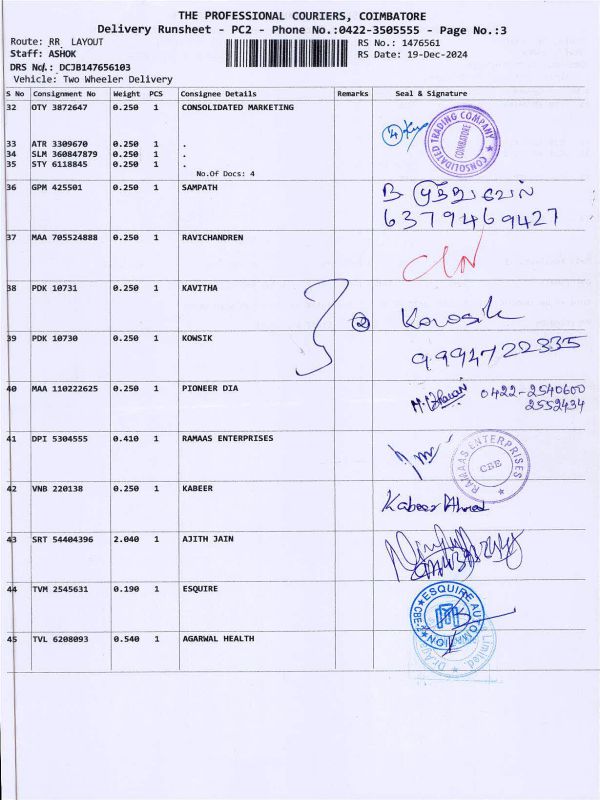 THE PROFESSIONAL COURIERS, COIMBATORE
Delivery Runsheet - PC2 - Phone No.:0422-3505555 - Page No.:3
Route: RR LAYOUT
RS No.: 1476561
Staff: ASHOK
RS Date: 19-Dec-2024
DRS No.: DCJB147656103
Vehicle: Two Wheeler Delivery
S No Consignment No Weight PCS Consignee Details Remarks Seal & Signature
32 OTY 3872647 0.250 1 CONSOLIDATED MARKETING
4
CONSOLIDATED TRADING COMPANY
COIMBATORE
33 ATR 3309670 0.250 1 .
34 SLM 360847879 0.250 1 .
35 STY 6118845 0.250 1 .
No.Of Docs: 4
36 GPM 425501 0.250 1 SAMPATH
B முத்துவேல்
6379469427
37 MAA 705524888 0.250 1 RAVICHANDREN
38 PDK 10731 0.250 1 KAVITHA
2 Kowsik
39 PDK 10730 0.250 1 KOWSIK
9994722335
40 MAA 110222625 0.250 1 PIONEER DIA
0422-2540600
2552434
41 DPI 5304555 0.410 1 RAMAAS ENTERPRISES
RAMAAS ENTERPRISES
CBE
42 VNB 220138 0.250 1 KABEER
Kabeer Ahmed
43 SRT 54404396 2.040 1 AJITH JAIN
44 TVM 2545631 0.190 1 ESQUIRE
ESQUIRE AUTOMATION
CBE
45 TVL 6208093 0.540 1 AGARWAL HEALTH
Limited